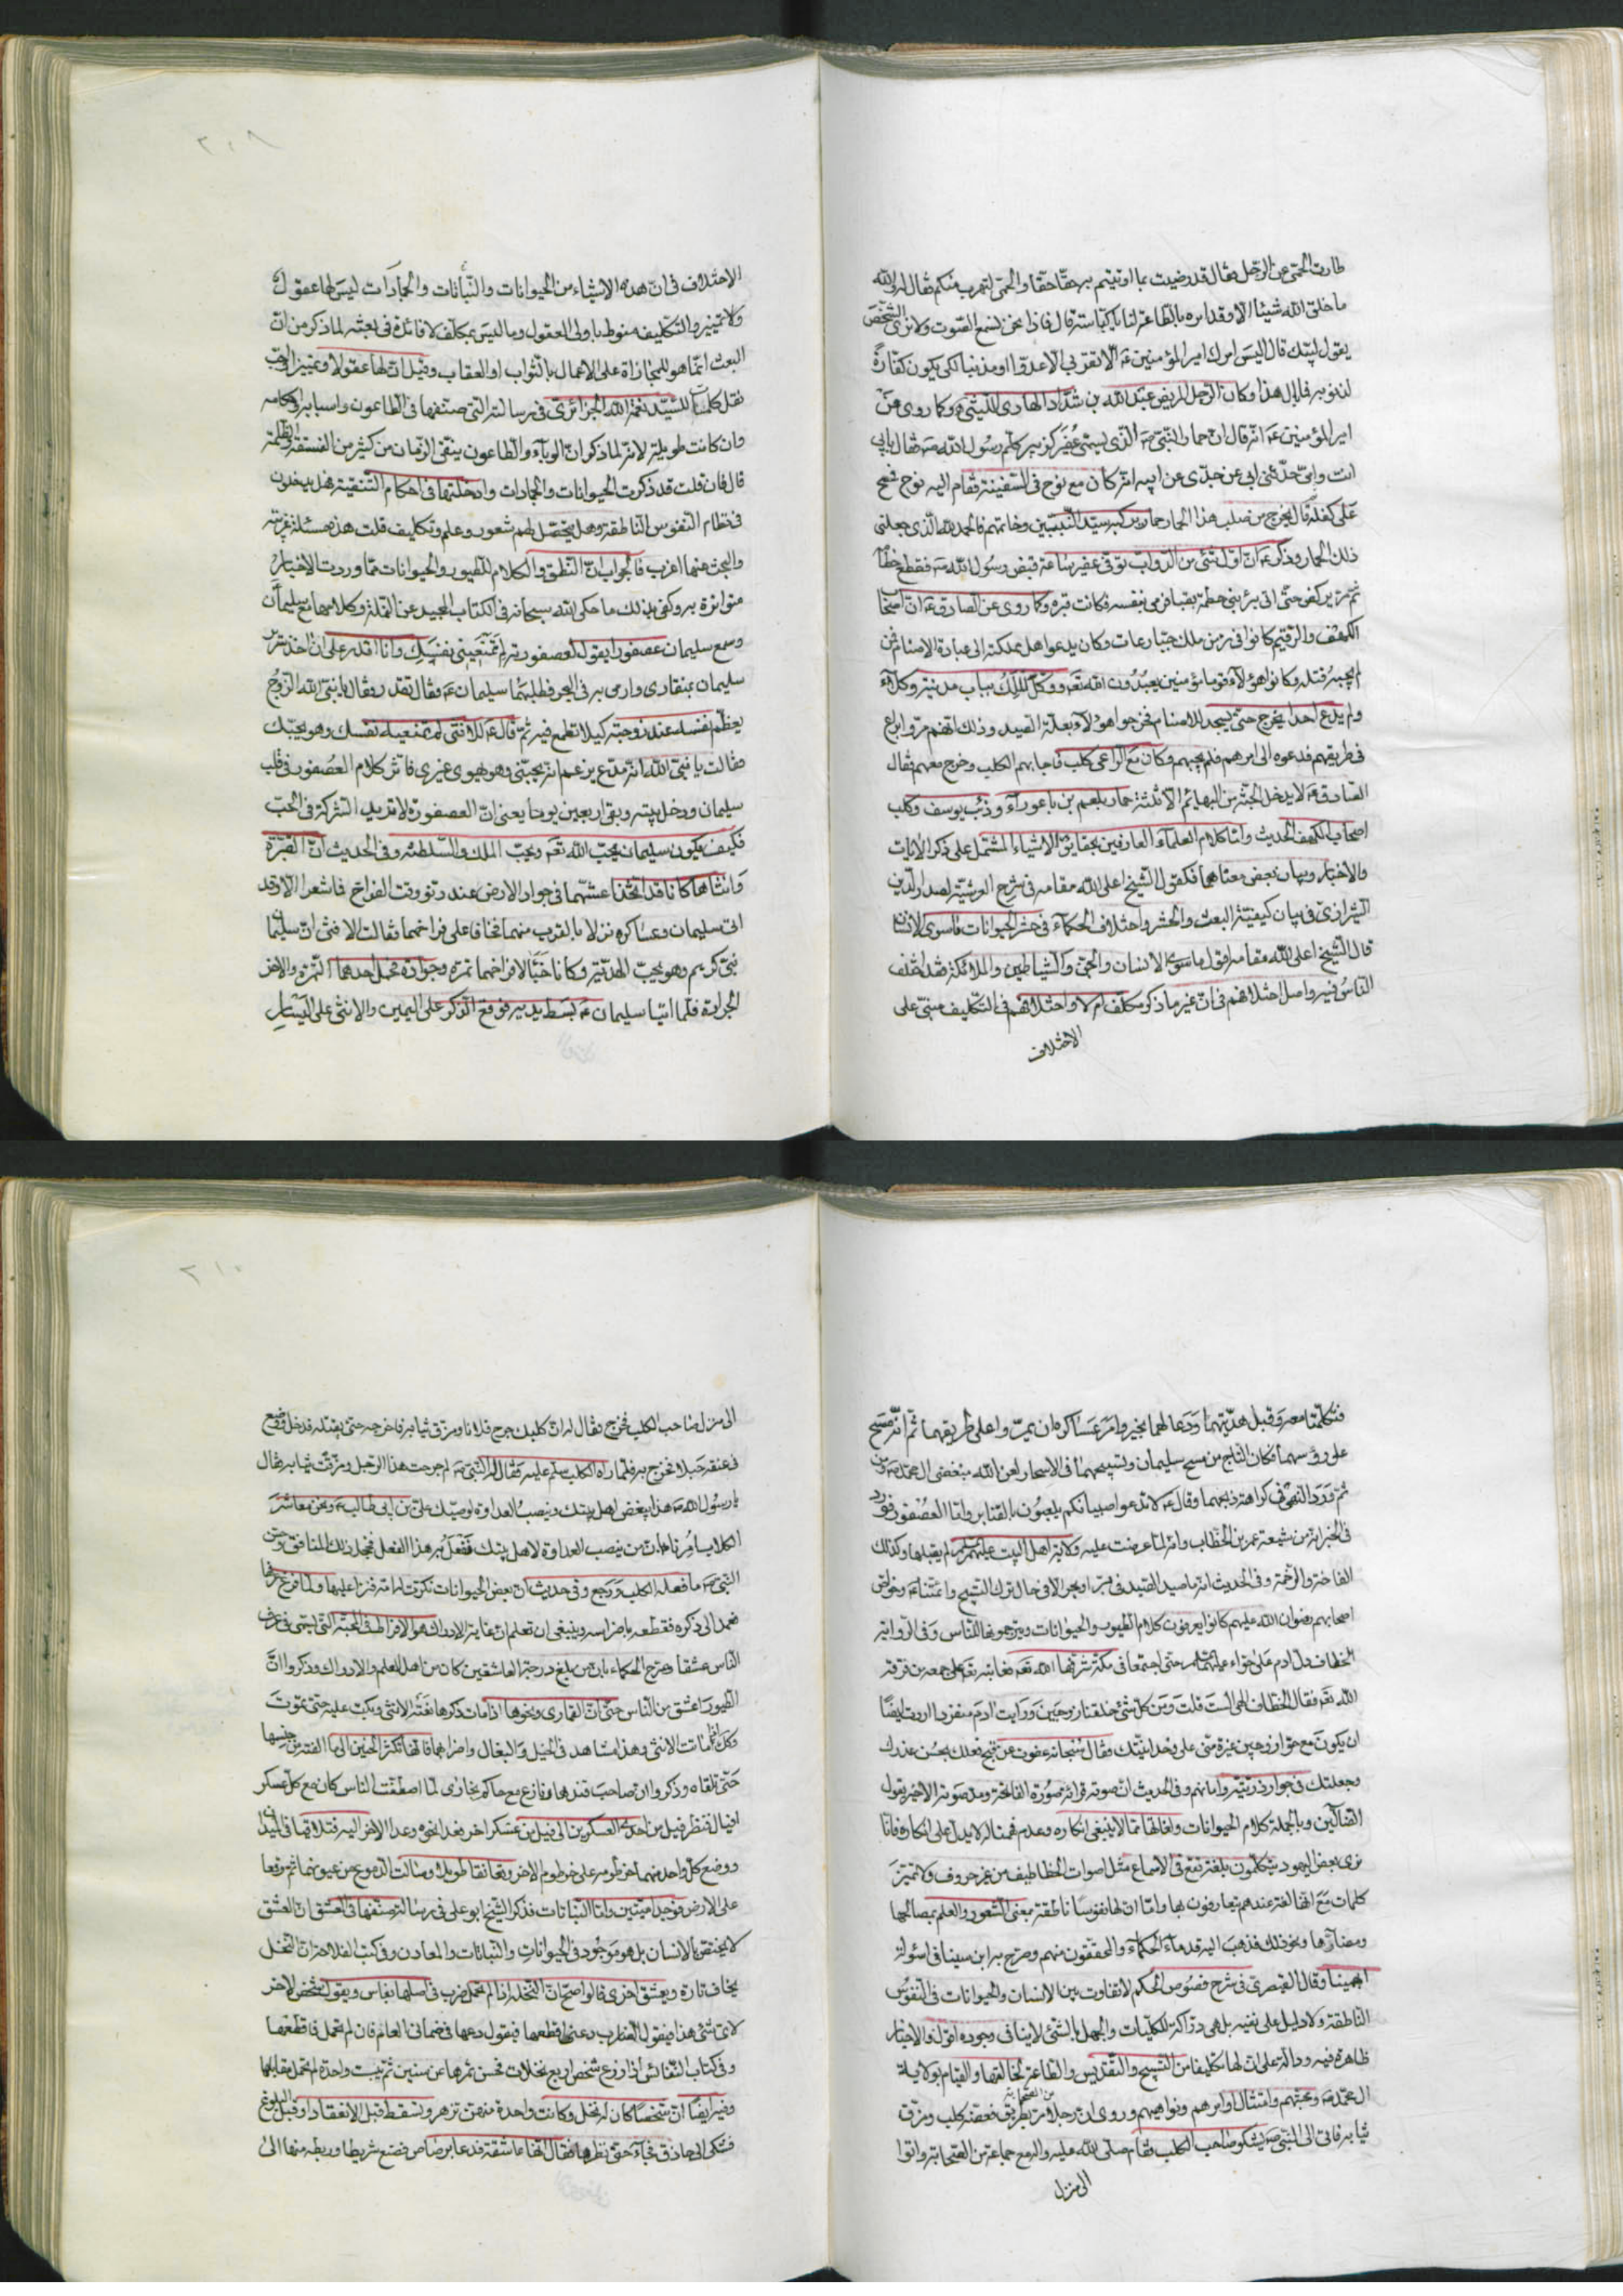 طارت الحمى عن الرجل فقال قد رضيت بما اوتيتم به حقا حقا والحمى لتهرب منكم فقال له والله
ما خلق الله شيئا الا وقد امره بالطاعة لنا يا كباسة قال فاذا نحن نسمع الصوت ولا نرى الشخص
يقول لبيك قال اليس امرك امير المؤمنين ع الا تقربي الا عدوا او مذنبا لكي يكون كفارة
لذنوبه فما بال هذا وكان الرجل المريض عبد الله بن شداد الهادى الليثى وكما روى عن
امير المؤمنين ع انه قال ان حمار النبى ص الذى يسمى عفير كزبير كلم رسول الله ص فقال بابى
انت وامى حدثنى ابى عن جدى عن ابيه انه كان مع نوح فى السفينة فقام اليه نوح فمسح
على كفله قال يخرج من صلب هذا الحمار حمار يركبه سيد النبيين وخاتمهم فالحمد لله الذى جعلنى
ذلك الحمار وذكر ع ان اول شئ من الدواب توفى عفير ساعة قبض رسول الله ص فقطع خطامه
ثم مر يركض حتى اتى بئر بنى حطمة بقبا فرمى بنفسه فكانت قبره وكما روى عن الصادق ع ان اصحاب
الكهف والرقيم كانوا فى زمن ملك جبار عات وكان يدعو اهل مملكته الى عبادة الاصنام فمن
لم يجبه قتله وكانوا هؤلاء قوما مؤمنين يعبدون الله تع ووكل الملك بباب مدينته وكلاء
ولم يدع احدا يخرج حتى يسجد للاصنام فخرجوا هؤلاء بعلة الصيد وذلك انهم مروا براع
فى طريقهم فدعوه الى امرهم فلم يجبهم وكان مع الراعى كلب فاجابهم الكلب وخرج معهم فقال
الصادق ع لا يدخل الجنة من البهايم الا ثلثة حمار بلعم بن باعوراء وذئب يوسف وكلب
اصحاب الكهف الحديث واما كلام العلماء العارفين بحقايق الاشياء المشتمل على ذكر الايات
والاخبار وبيان بعض معناها فكقول الشيخ اعلى الله مقامه فى شرح العرشية لصدر الدين
الشيرازى فى بيان كيفية البعث والحشر واختلاف الحكماء فى حشر الحيوانات ما سوى الانسان
قال الشيخ اعلى الله مقامه اقول ما سوى الانسان والجن والشياطين والملائكة فقد اختلف
الناس فيه واصل اختلافهم فى ان غير ما ذكر مكلف ام لا واختلافهم فى التكليف مبنى على
الاختلاف
٢٠٨
الاختلاف فى ان هذه الاشياء من الحيوانات والنباتات والجمادات ليس لها عقول
ولا تمييز والتكليف منوط باولى العقول وما ليس بمكلف لا فائدة فى بعثه لما ذكر من ان
البعث انما هو للمجازاة على الاعمال بالثواب او العقاب وقيل ان لها عقولا وتمييزا
نقل كلمات للسيد نعمة الله الجزائرى فى رسالته التى صنفها فى الطاعون واسبابه واحكامه
وان كانت طويلة لانه لما ذكر ان الوباء والطاعون ينقى الزمان من كثير من الفسقة والظلمة
قال فان قلت قد ذكرت الحيوانات والجمادات وادخلتها فى احكام التنقية فهل يدخلون
فى نظام النفوس الناطقة وهل يحصل لهم شعور وعلم وتكليف قلت هذه مسئلة غريبة
والبحث عنها اغرب فالجواب ان النطق والكلام للطيور والحيوانات مما وردت الاخبار
متواترة به وكفى بذلك ما حكى الله سبحانه فى الكتاب المجيد عن النملة وكلامها مع سليمان
وسمع سليمان عصفورا يقول لعصفورته لم تمنعينى نفسك وانا اقدر على ان اخذ قبة
سليمان بمنقارى وارمى به فى البحر فطلبهما سليمان ع وقال تقدر وقال يا نبى الله الزوج
يعظم نفسه عند زوجته كيلا تطمع فيه ثم قال ع للانثى لم تمنعيه نفسك وهو يحبك
فقالت يا نبى الله انه مدع يزعم انه يحبنى وهو يهوى غيرى فاثر كلام العصفور فى قلب
سليمان ودخل بيته وبقى اربعين يوما يعنى ان العصفورة لا تريد الشركة فى الحب
فكيف يكون سليمان يحب الله تع ويحب الملك والسلطنة وفى الحديث ان القبرة
وانثاها كانا قد اتخذا عشهما فى جوار الارض عند دنو وقت الفراخ فاشعرا الا وقد
اتى سليمان وعساكره نزلا بالقرب منهما فخافا على فراخهما فقالت الانثى ان سليمان
نبى كريم وهو يحب الهدية وكانا خبئا لافراخهما تمرة وجرادة فحمل احدهما التمرة والاخر
الجرادة فلما اتيا سليمان ع بسط يديه فوقع الذكر على اليمين والانثى على اليسار
فتكلما معه وقبل هديتهما ودعا لهما بخير وامر عساكره ان يميروا على طريقهما ثم انه مسح
على رؤسهما فكان التاج من مسح سليمان وتسبيحهما فى الاسحار لعن الله مبغضى ال محمد ص ومن
ثم ورد النهى فى كراهة ذبحهما وقال ع لا تدعوا صبيانكم يلعبون بالقنابر واما العصفور فورد
فى الخبر انه من شيعة عمر بن الخطاب وانه لما عرضت عليه ولاية اهل البيت عليهم السلام لم يقبلها وكذلك
الفاختة والرخمة وفى الحديث انه ما صيد الصيد فى بر او بحر الا فى حال ترك التسبيح وائمتنا ع وخواص
اصحابهم رضوان الله عليهم كانوا يعرفون كلام الطيور والحيوانات ويترجمونها للناس وفى الرواية
الخطاف دل ادم على حواء عليهما السلم حتى اجتمعا فى مكة شرفها الله تع
الله تع فقال الخطاف الهى الست قلت ومن كل شئ خلقنا زوجين ورايت ادم منفردا اردت ايضا
ان يكون مع حوا زوجين غيرة منى على وحدانيتك وقال سبحانه عفوت عن قبيح فعلك بحسن عذرك
وجعلتك فى جوار ذريته وامانهم وفى الحديث ان صوته قراءة سورة الفاتحة ومد صوته الاخير يقول
الضالين وبالجملة كلام الحيوانات ولغاتها مما لا ينبغى انكاره وعدم فهمنا له لا يدل على انكاره فانا
نرى بعض اليهود يتكلمون بلغة تقع فى الاسماع مثل اصوات الخطاطيف من غير حروف ولا تمييز
كلمات مع انها لغة عندهم يتعارفون بها واما ان لها نفوسا ناطقة بمعنى الشعور والعلم بمصالحها
ومضارها ونحو ذلك فذهب اليه قدماء الحكماء والمحققون منهم وصرح به ابن سينا فى اسولة
بهمنيار وقال القيصرى فى شرح فصوص الحكم لا تفاوت بين الانسان والحيوانات فى النفوس
الناطقة ولا دليل على نفيه بل هى دراكة للكليات والجهل بالشئ لا ينافى وجوده اقول والاخبار
ظاهرة فيه ودالة على ان لها تكليفا من التسبيح والتقديس والطاعة لخالقها والقيام بولاية
ال محمد ص ومحبتهم وامتثال اوامرهم ونواهيهم وروى ان رجلا من الصحابة مر بطريق فعضه كلب ومزق
ثيابه فاتى الى النبى ص يشكو صاحب الكلب فقام صلى الله عليه واله مع جماعة من الصحابة واتوا
الى منزل
٢١٠
الى منزل صاحب الكلب فخرج فقال له ان كلبك جرح فلانا ومزق ثيابه فاخرجه حتى يقتله فدخل ووضع
فى عنقه حبلا فخرج به فلما راه الكلب سلم عليه فقال له النبى ص لم جرحت هذا الرجل ومزقت ثيابه فقال
يا رسول الله ص هذا يبغض اهل بيتك وينصب العداوة لوصيك على بن ابى طالب ع ونحن معاشر
الكلاب امرنا بان من ينصب العداوة لاهل بيتك نفعل به هذا الفعل فخجل ذلك المنافق وحسن
النبى ص ما فعله الكلب ورجع وفى حديث ان بعض الحيوانات نكرت له امه فنزا عليها ولما فرغ عرفها
فعمد الى ذكره فقطعه باضراسه وينبغى ان تعلم ان غاية الادراك هو الافراط فى المحبة التى تسمى فى عرف
الناس عشقا وصرح الحكماء بان من بلغ درجة العاشقين كان من اهل العلم والادراك وذكروا ان
الطيور اعشق من الناس حتى ان القمارى ونحوها اذا مات ذكرها نعته الانثى وبكت عليه حتى تموت
وكذا اذا ماتت الانثى وهذا مشاهد فى الخيل والبغال واضرابهما فانها تكثر الحنين الى ما الفته من جنسها
حتى تلقاه وذكروا ان صاحب قندهار نازع مع حاكم بخارى لما اصطفت الناس كان مع كل عسكر
افيال فنظر فيل من احد العسكرين الى فيل من عسكر اخر فعدا نحوه وعدا الاخر اليه فتلاقيا فى الميدان
ووضع كل واحد منهما خرطومه على خرطوم الاخر وتعانقا طويلا وسالت الدموع من عيونهما ثم وقعا
على الارض فوجدا ميتين واما النباتات فذكر الشيخ ابو على فى رسالة صنفها فى العشق ان العشق
لا يختص بالانسان بل هو موجود فى الحيوانات والنباتات والمعادن وفى كتب الفلاحة ان النخل
يخاف تارة ويعشق اخرى قالوا صح ان النخلة اذا لم تحمل ضرب فى اصلها بفاس ويقول شخص لاخر
لاى شئ هذا فيقول الضارب دعنى اقطعها فيقول دعها فى ضمانى العام فان لم تحمل فاقطعها
وفى كتاب النفائس اذا زرع شخص اربع نخلات فحسن ثمرها عن سنين ثم يبست واحدة لم تحمل مقابلها
وفيه ايضا ان شخصا كان له نخل وكانت واحدة منهن تزهر وتسقط قبل الانعقاد او قبل البلوغ
فشكى الى حاذق فجاء حتى نظرها فقال انها عاشقة فدعا برصاص فصنع شريطا وربطه منها الى